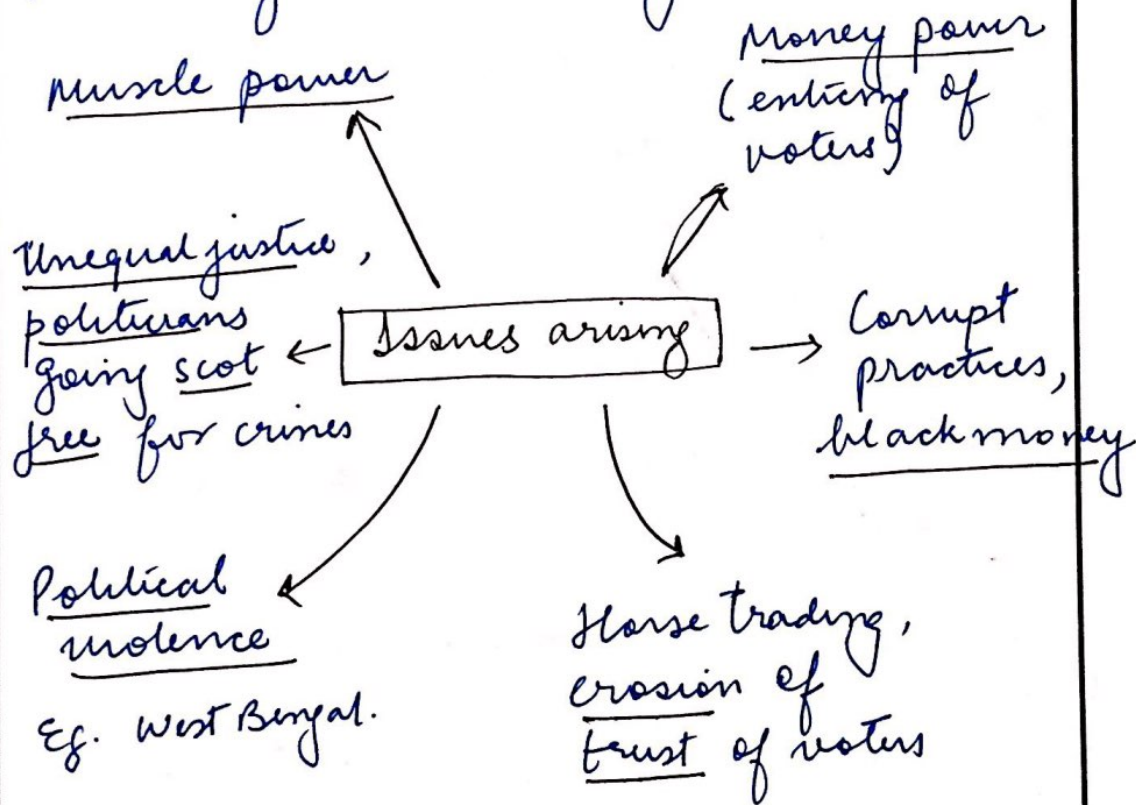 Muscle power
Money power
(enticing of
voters)
Unequal justice,
politicians
going scot
free for crimes
Issues arising
Corrupt
practices,
black money
Political
violence
Eg. West Bengal.
Horse trading,
erosion of
trust of voters